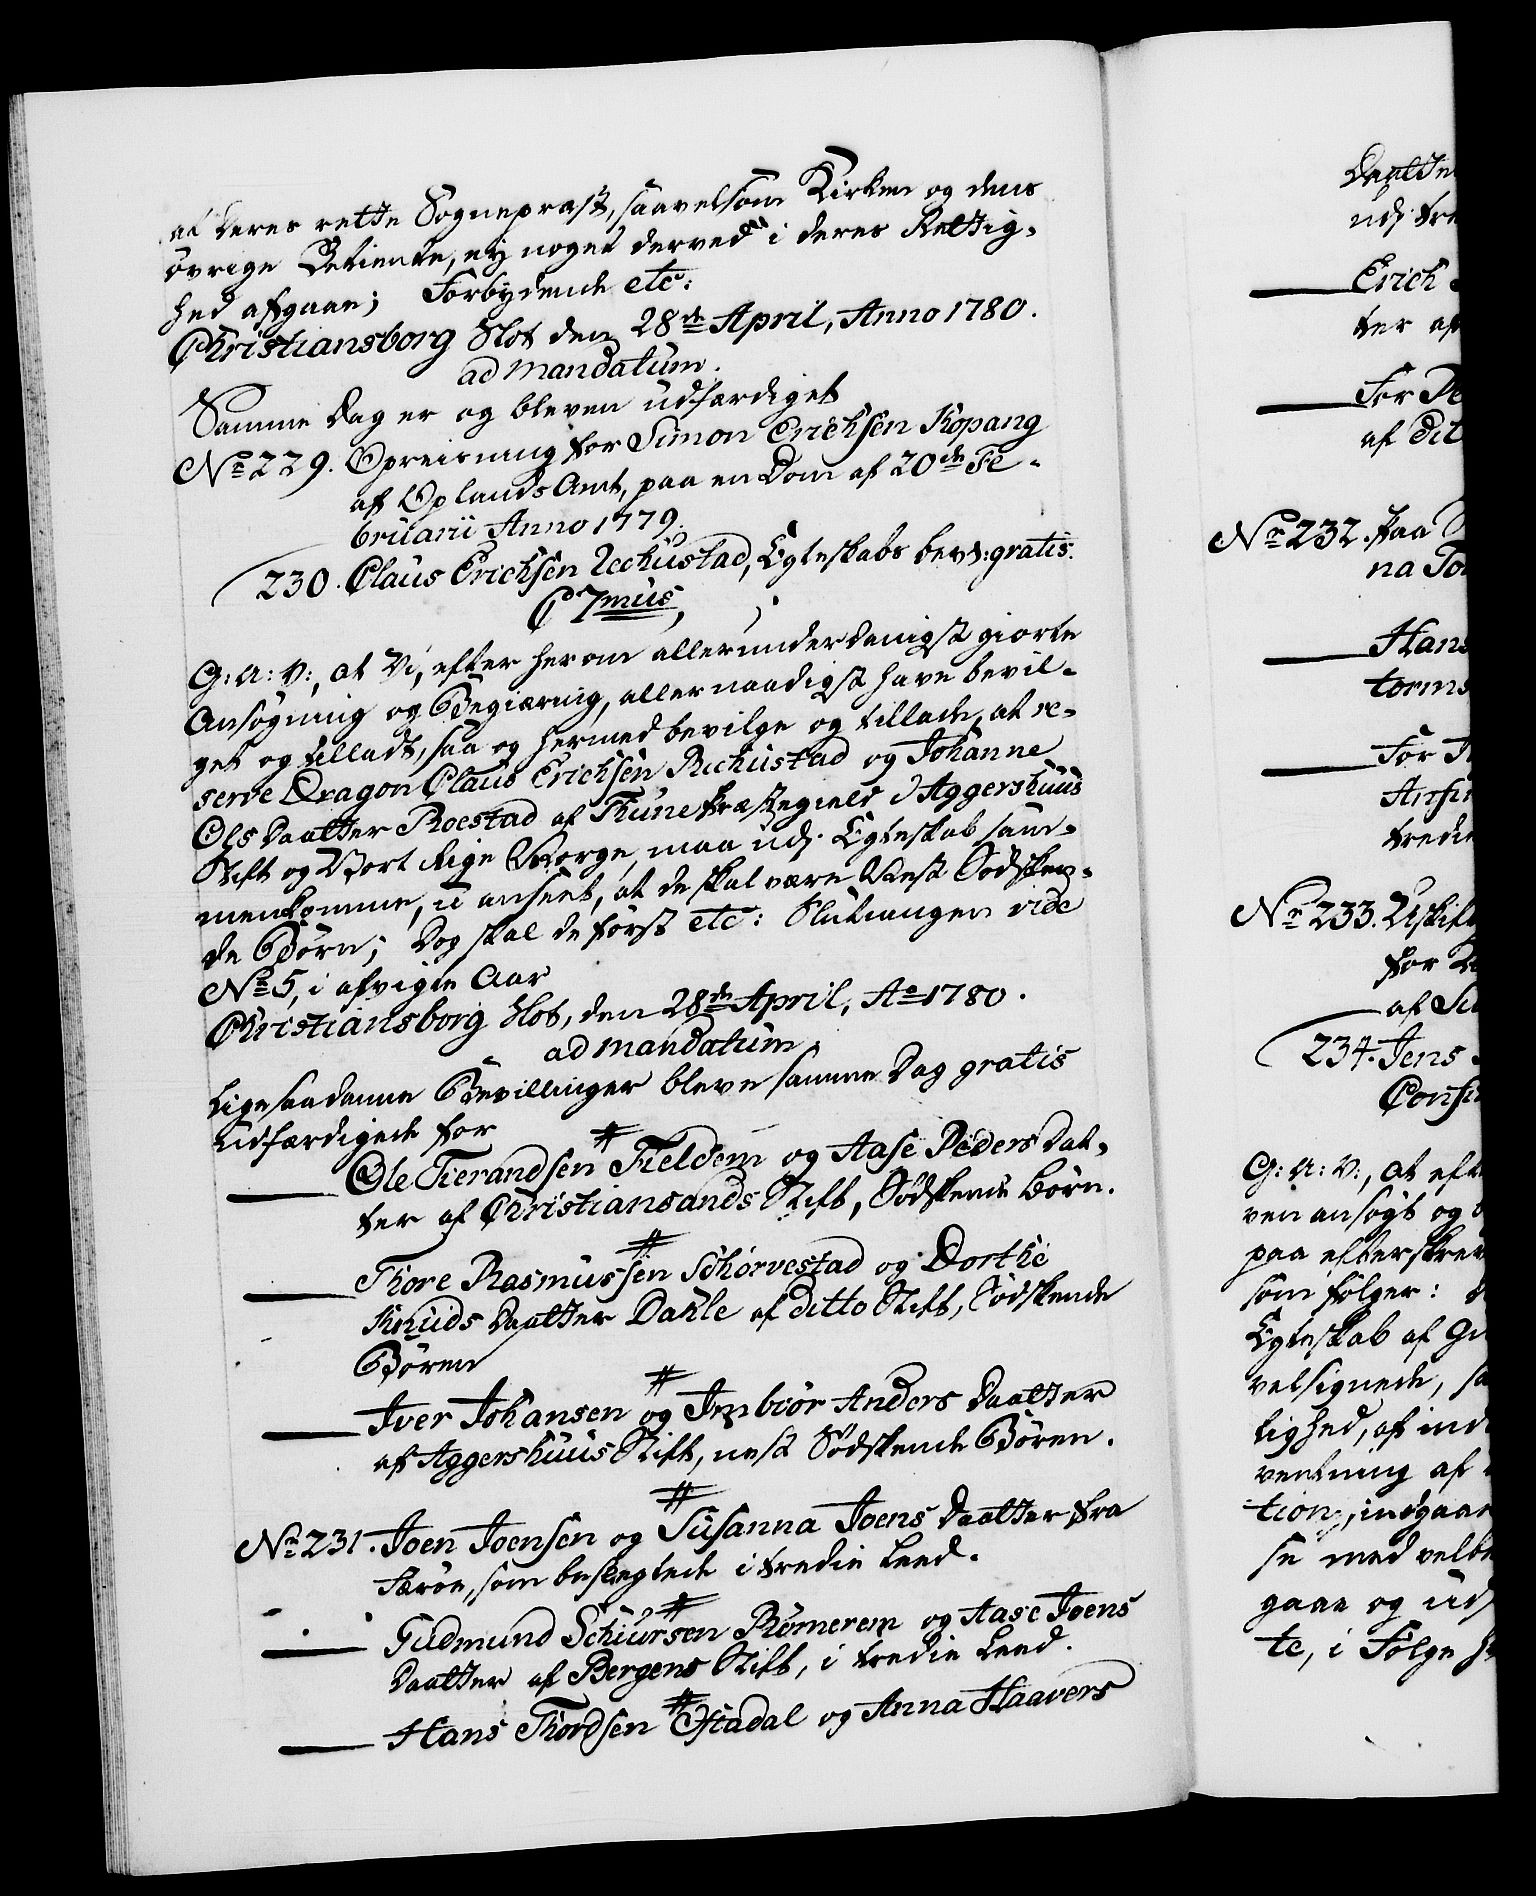 at deres rette Sognepræst, saavelsom Kirken og dens
øvrige Betiente, ey noget derved i deres Rettig-
hed afgaae; Forbydende etc:
Christiansborg Slot den 28de April, Anno 1780.
ad mandatum.
Samme Dag er og bleven udfærdiget
No 229. Opreisning for Simon Erichsen Kopang
af Oplands Amt, paa en Dom af 20de Fe-
bruarii Anno 1779.
230. Claus Erichsen Rechustad, Egteskabs bev: gratis.
C 7mus,
G: A: V:, at Vi, efter herom allerunderdanigst giorte
Ansøgning og Begiæring, allernaadigst have bevil-
get og tilladt, saa og hermed bevilge og tillade, at re-
serve Dragon Claus Erichsen Rechustad og Johanne
Ols Daatter Roestad af Thune Præstegield i Aggershuus
Stift og Vort Rige Norge, maa udj Egteskab sam-
menkomme, u anseet, at de skal være Næst Sødsken-
de Børn; Dog skal de først etc: Slutningen vide
No 5, i afvigte Aar
Christiansborg Slot, den 28de April, Ao 1780.
ad mandatum.
Ligesaadanne Bevillinger bleve samme Dag gratis
udfærdigede for
Ole Tierandsen Fieldem og Aase Peders Dat-
ter af Christiansands Stift, Sødskende Børn.
Thore Rasmussen Schorvestad og Dorthe
Knuds Daatter Dahle af ditto Stift, Sødskende
Børen
Iver Johansen og Imbiør Anders Daatter
af Aggershuus Stift, nest Sødskende Børen.
No 231. Joen Joensen og Susanna Joens Daatter fra
Færøe, som beslegtede i tredie Leed.
Gudmund Schiursen Rømerem og Aase Joens
Daatter af Bergens Stift, i tredie Leed.
Hans Thordsen Ofstadal og Anna Haavers
Daatte
udj tre
Erich
ter af
For
af dit
No 232. paa
na
Hans
torms
For
Anfin
tredie
No 233. Uskifte
for
af
234. Jens
G: A: V:, at eft
ven ansøgt og
paa efterskrev
som følger:
Egteskab af
velsignede, sa
lighed, af ind
ventning af
tion, indgaae
se med velbe
gaae og uds
te, i Følge